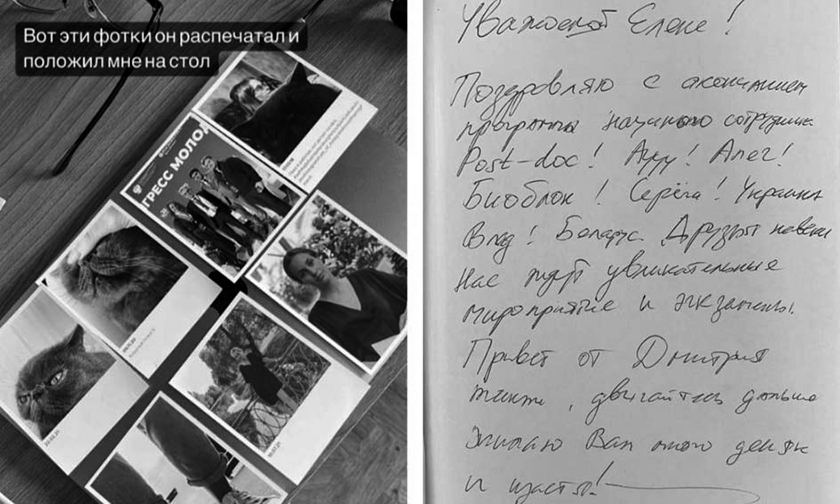 Вот эти фотки он распечатал и
положил мне на стол
ГРЕСС МОЛО
Уважаемой Елене!
Поздравляю с окончанием
программы научного сотрудника
Post-doc! Ауу! Алег!
Биоблок! Серёга! Украина
Влад! Беларус. Друзья навеки
Нас ждут увлекательные
мероприятие и экзамены.
Привет от Дмитрия
двигайтесь дальше
желаю Вам много деняк
и щастья!